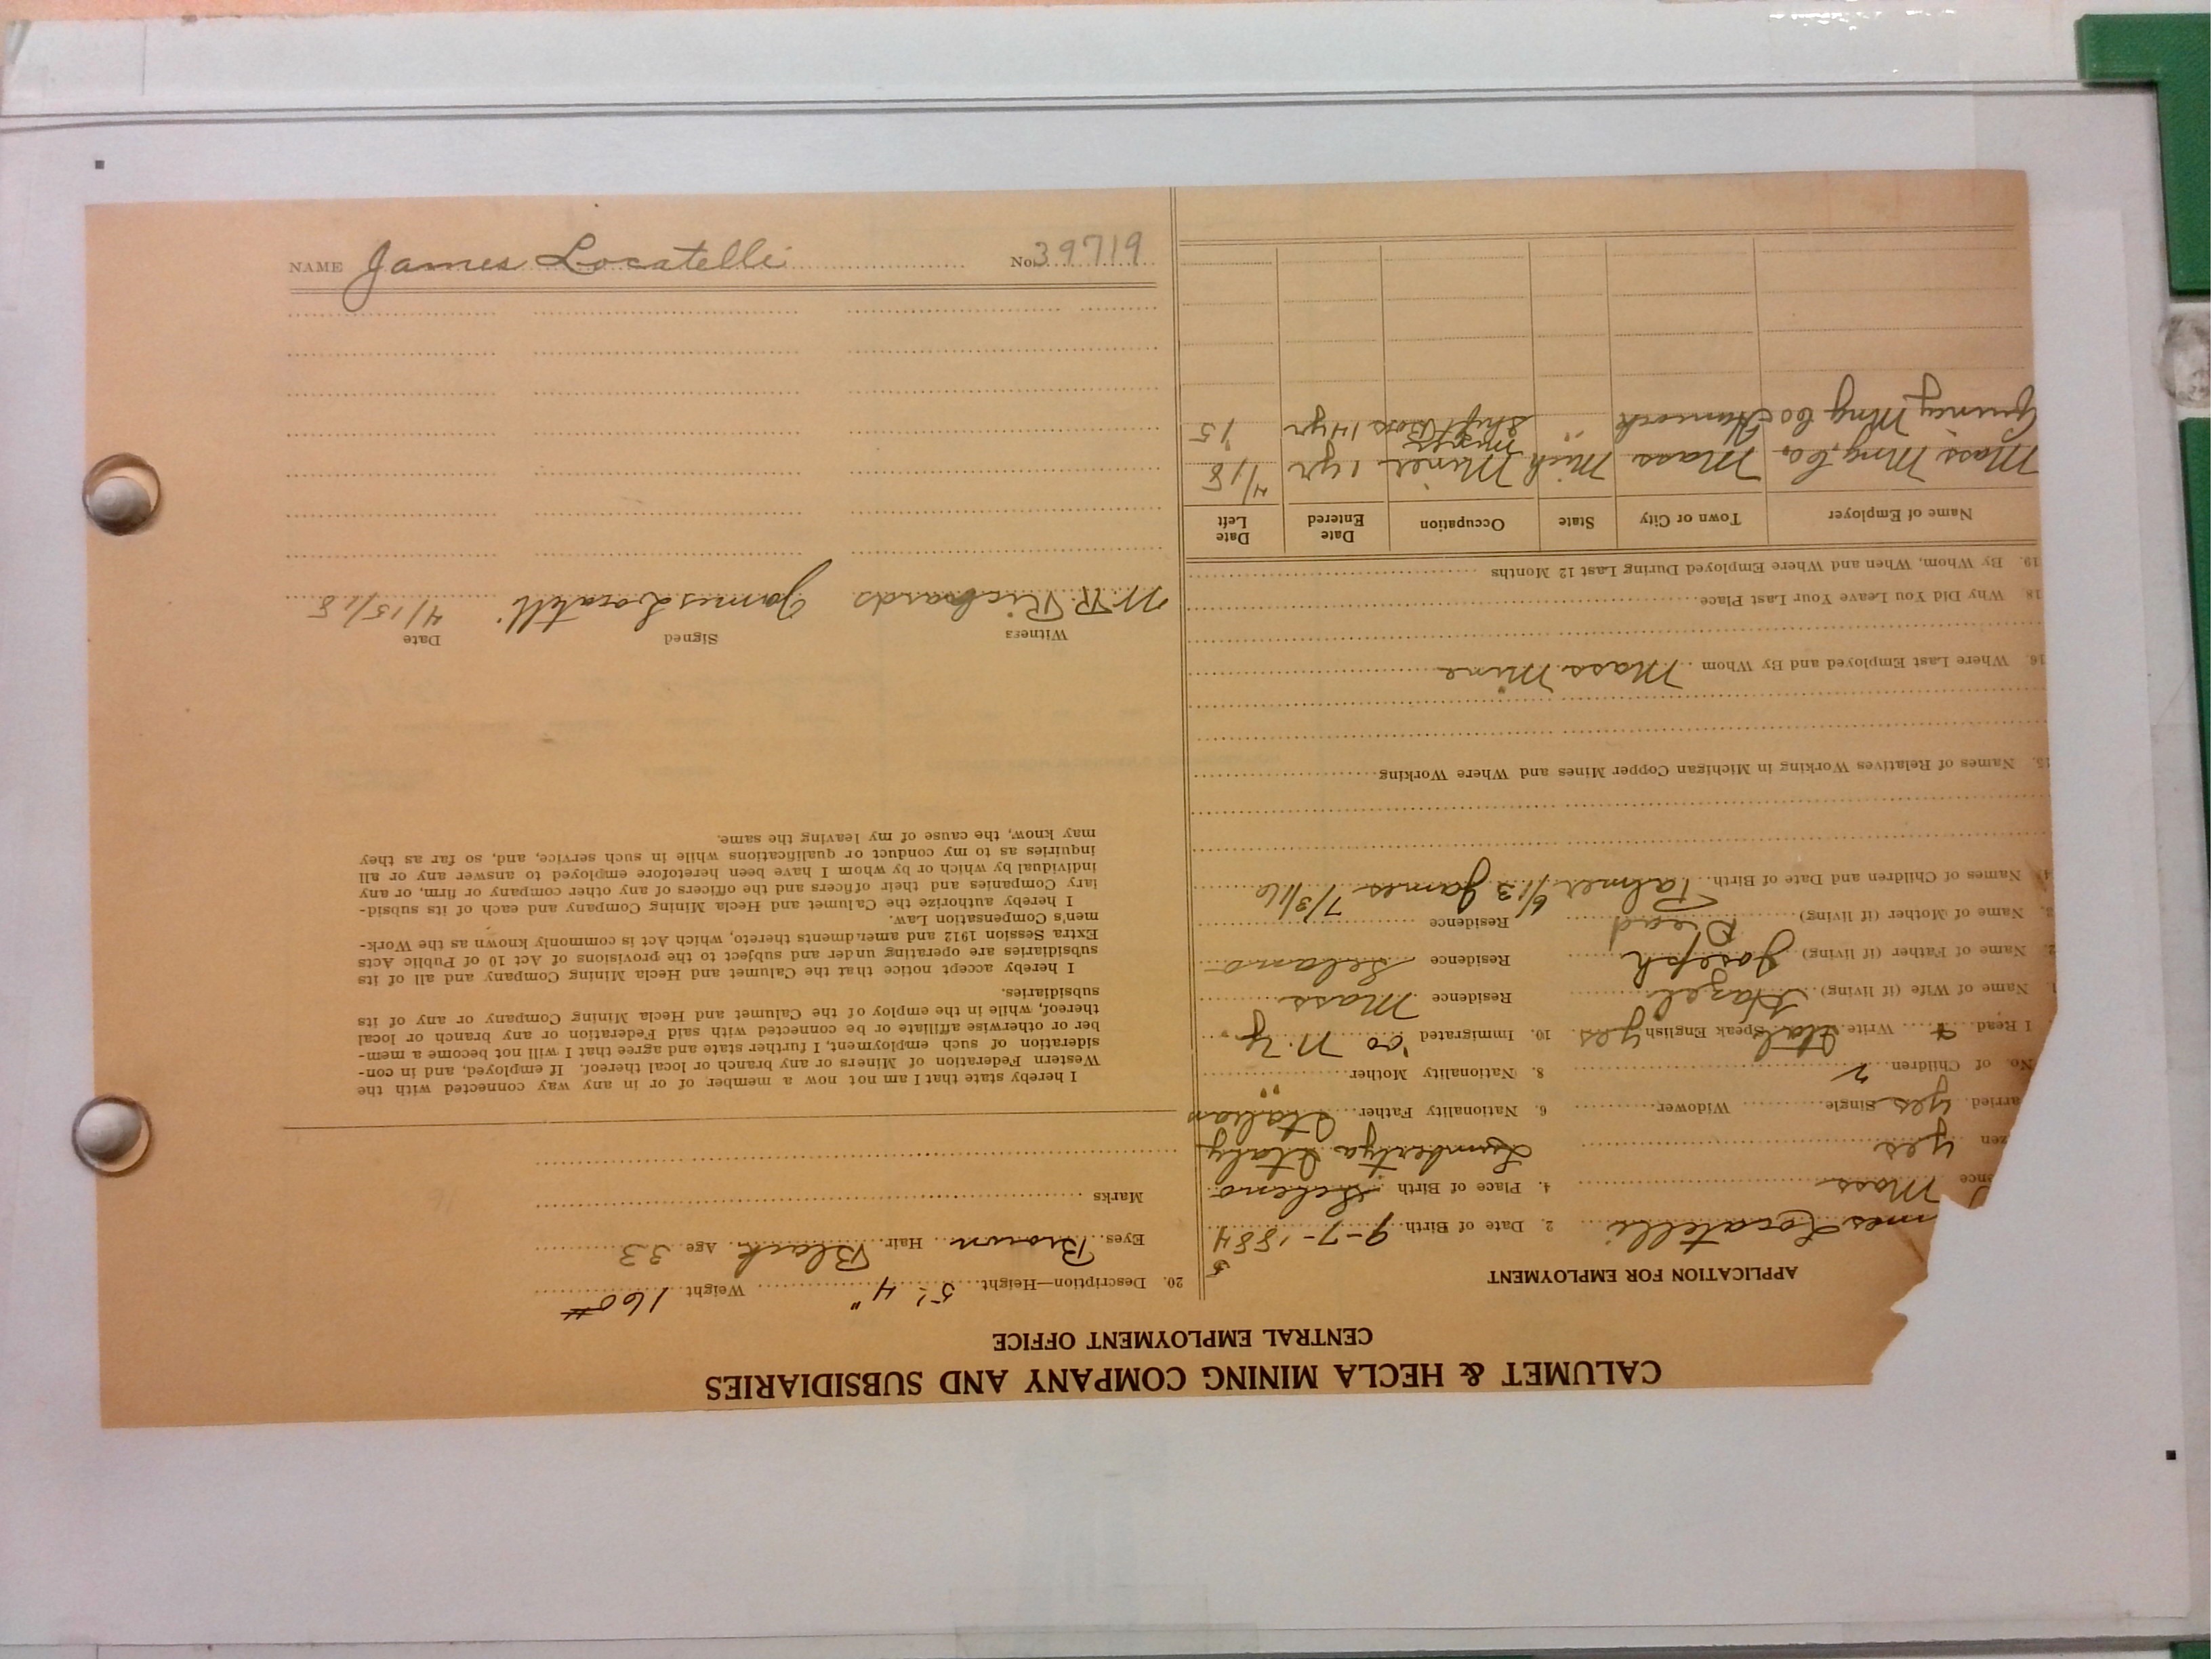 CALUMET & HECLA MINING COMPANY AND SUBSIDIARIES
CENTRAL EMPLOYMENT OFFICE
APPLICATION FOR EMPLOYMENT
mes Locatelli 2. Date of Birth 9-7-1884
5
ence Mass 4. Place of Birth
zen yes Italy
arried yes Single Widower 6. Nationality Father Italian
No. of Children 2 8. Nationality Mother " "
I Read Write Ital Speak English yes 10. Immigrated '00 N.Y.
1. Name of Wife (if living) Hazel Residence Mass
2. Name of Father (if living) Joseph Residence
3. Name of Mother (if living) Dead Residence
4. Names of Children and Date of Birth Palmer 6/13 James 7/3/16
15. Names of Relatives Working in Michigan Copper Mines and Where Working
16. Where Last Employed and By Whom Mass Mine
18. Why Did You Leave Your Last Place
19. By Whom, When and Where Employed During Last 12 Months
Name of Employer Town or City State Occupation Date Entered Date Left
Mass Mng. Co. Mass Mich Miner 1 yr 4/18
Quincy Mng Co Hancock " Shift Boss 14 yr 15
20. Description—Height 5' 4" Weight 160 #
Eyes Brown Hair Black Age 33
Marks
I hereby state that I am not now a member of or in any way connected with the
Western Federation of Miners or any branch or local thereof. If employed, and in con-
sideration of such employment, I further state and agree that I will not become a mem-
ber or otherwise affiliate or be connected with said Federation or any branch or local
thereof, while in the employ of the Calumet and Hecla Mining Company or any of its
subsidiaries.
I hereby accept notice that the Calumet and Hecla Mining Company and all of its
subsidiaries are operating under and subject to the provisions of Act 10 of Public Acts
Extra Session 1912 and amendments thereto, which Act is commonly known as the Work-
men's Compensation Law.
I hereby authorize the Calumet and Hecla Mining Company and each of its subsid-
iary Companies and their officers and the officers of any other company or firm, or any
individual by which or by whom I have been heretofore employed to answer any or all
inquiries as to my conduct or qualifications while in such service, and, so far as they
may know, the cause of my leaving the same.
Witness Signed Date
Richards James Locatelli 4/15/18
NAME James Locatelli No. 39719